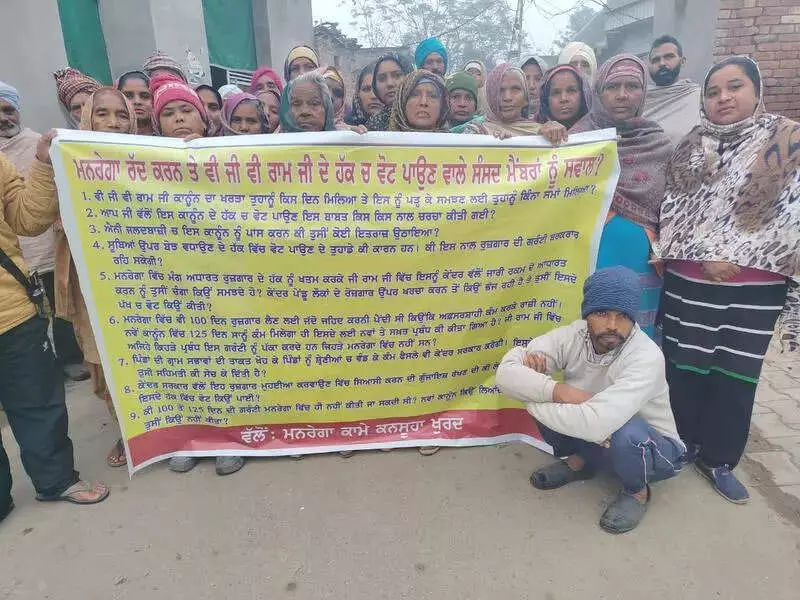 ਮਨਰੇਗਾ ਰੱਦ ਕਰਨ ਤੇ ਵੀ ਜੀ ਵੀ ਰਾਮ ਜੀ ਦੇ ਹੱਕ ਚ ਵੋਟ ਪਾਉਣ ਵਾਲੇ ਸੰਸਦ ਮੈਂਬਰਾਂ ਨੂੰ ਸਵਾਲ?
1. ਵੀ ਜੀ ਵੀ ਰਾਮ ਜੀ ਕਾਨੂੰਨ ਦਾ ਖਰੜਾ ਤੁਹਾਨੂੰ ਕਿਸ ਦਿਨ ਮਿਲਿਆ ਤੇ ਇਸ ਨੂੰ ਪੜ੍ਹ ਕੇ ਸਮਝਣ ਲਈ ਤੁਹਾਨੂੰ ਕਿੰਨਾ ਸਮਾਂ ਮਿਲਿਆ?
2. ਆਪ ਜੀ ਵੱਲੋਂ ਇਸ ਕਾਨੂੰਨ ਦੇ ਹੱਕ ਚ ਵੋਟ ਪਾਉਣ ਇਸ ਬਾਬਤ ਕਿਸ ਕਿਸ ਨਾਲ ਚਰਚਾ ਕੀਤੀ ਗਈ?
3. ਐਨੀ ਜਲਦਬਾਜ਼ੀ ਚ ਇਸ ਕਾਨੂੰਨ ਨੂੰ ਪਾਸ ਕਰਨ ਕੀ ਤੁਸੀਂ ਕੋਈ ਇਤਰਾਜ਼ ਉਠਾਇਆ?
4. ਸੂਬਿਆਂ ਉਪਰ ਬੋਝ ਵਧਾਉਣ ਦੇ ਹੱਕ ਵਿੱਚ ਵੋਟ ਪਾਉਣ ਦੇ ਤੁਹਾਡੇ ਕੀ ਕਾਰਨ ਹਨ। ਕੀ ਇਸ ਨਾਲ ਰੁਜ਼ਗਾਰ ਦੀ ਗਰੰਟੀ ਬਰਕਰਾਰ
ਰਹਿ ਸਕੇਗੀ?
5. ਮਨਰੇਗਾ ਵਿੱਚ ਮੰਗ ਅਧਾਰਤ ਰੁਜ਼ਗਾਰ ਦੇ ਹੱਕ ਨੂੰ ਖਤਮ ਕਰਕੇ ਜੀ ਰਾਮ ਜੀ ਵਿੱਚ ਇਸਨੂੰ ਕੇਂਦਰ ਵੱਲੋਂ ਜਾਰੀ ਰਕਮ ਦੇ ਆਧਾਰਤ
ਕਰਨ ਨੂੰ ਤੁਸੀਂ ਚੰਗਾ ਕਿਉਂ ਸਮਝਦੇ ਹੋ? ਕੇਂਦਰ ਪੇਂਡੂ ਲੋਕਾਂ ਦੇ ਰੋਜ਼ਗਾਰ ਉਪਰ ਖਰਚਾ ਕਰਨ ਤੋਂ ਕਿਉਂ ਭੱਜ ਰਹੀ ਹੈ ਤੇ ਤੁਸੀਂ ਇਸਦੇ
ਪੱਖ ਚ ਵੋਟ ਕਿਉਂ ਕੀਤੀ?
6. ਮਨਰੇਗਾ ਵਿੱਚ ਵੀ 100 ਦਿਨ ਰੁਜ਼ਗਾਰ ਲੈਣ ਲਈ ਜੱਦੋ ਜਹਿਦ ਕਰਨੀ ਪੈਂਦੀ ਸੀ ਕਿਉਂਕਿ ਅਫ਼ਸਰਸ਼ਾਹੀ ਕੰਮ ਕਰਕੇ ਰਾਜ਼ੀ ਨਹੀਂ।
ਨਵਾਂ ਕਾਨੂੰਨ ਵਿੱਚ 125 ਦਿਨ ਸਾਨੂੰ ਕੰਮ ਮਿਲੇਗਾ ਹੀ ਇਸਦੇ ਲਈ ਨਵਾਂ ਤੇ ਸਖ਼ਤ ਪ੍ਰਬੰਧ ਕੀ ਕੀਤਾ ਗਿਆ ਹੈ? ਜੀ ਰਾਮ ਜੀ ਵਿੱਚ
ਅਜਿਹੇ ਕਿਹੜੇ ਪ੍ਰਬੰਧ ਇਸ ਗਰੰਟੀ ਨੂੰ ਪੱਕਾ ਕਰਦੇ ਹਨ ਜਿਹੜੇ ਮਨਰੇਗਾ ਵਿੱਚ ਨਹੀਂ ਸਨ?
7. ਪਿੰਡਾਂ ਦੀ ਗ੍ਰਾਮ ਸਭਾਵਾਂ ਦੀ ਤਾਕਤ ਖੋਹ ਕੇ ਪਿੰਡਾਂ ਨੂੰ ਸ਼੍ਰੇਣੀਆਂ ਚ ਵੰਡ ਕੇ ਕੰਮ ਫੈਸਲੇ ਵੀ ਕੇਂਦਰ ਸਰਕਾਰ ਕਰੇਗੀ।
ਤੁਸੀਂ ਸਹਿਮਤੀ ਕੀ ਸੋਚ ਕੇ ਦਿੱਤੀ ਹੈ?
8. ਕੇਂਦਰ ਸਰਕਾਰ ਵੱਲੋਂ ਇਹ ਰੁਜ਼ਗਾਰ ਮੁਹਈਆ ਕਰਵਾਉਣ ਵਿੱਚ ਸਿਆਸੀ ਕਰਨ ਦੀ ਗੁੰਜਾਇਸ਼ ਰੱਖਣ ਦੀ ਕੀ
ਇਸਦੇ ਹੱਕ ਵਿੱਚ ਵੋਟ ਕਿਉਂ ਪਾਈ?
9. ਕੀ 100 ਤੋਂ 125 ਦਿਨ ਦੀ ਗਰੰਟੀ ਮਨਰੇਗਾ ਵਿੱਚ ਹੀ ਨਹੀਂ ਕੀਤੀ ਜਾ ਸਕਦੀ ਸੀ? ਨਵਾਂ ਕਾਨੂੰਨ ਕਿਉਂ
ਤੁਸੀਂ ਕਿਉਂ ਨਹੀਂ ਕੀਤਾ?
ਵੱਲੋਂ: ਮਨਰੇਗਾ ਕਾਮੇ ਕਨਸੂਹਾ ਖੁਰਦ